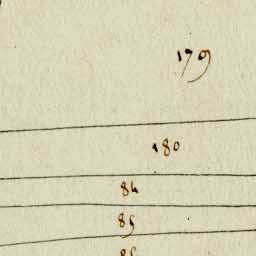 179
180
84
85